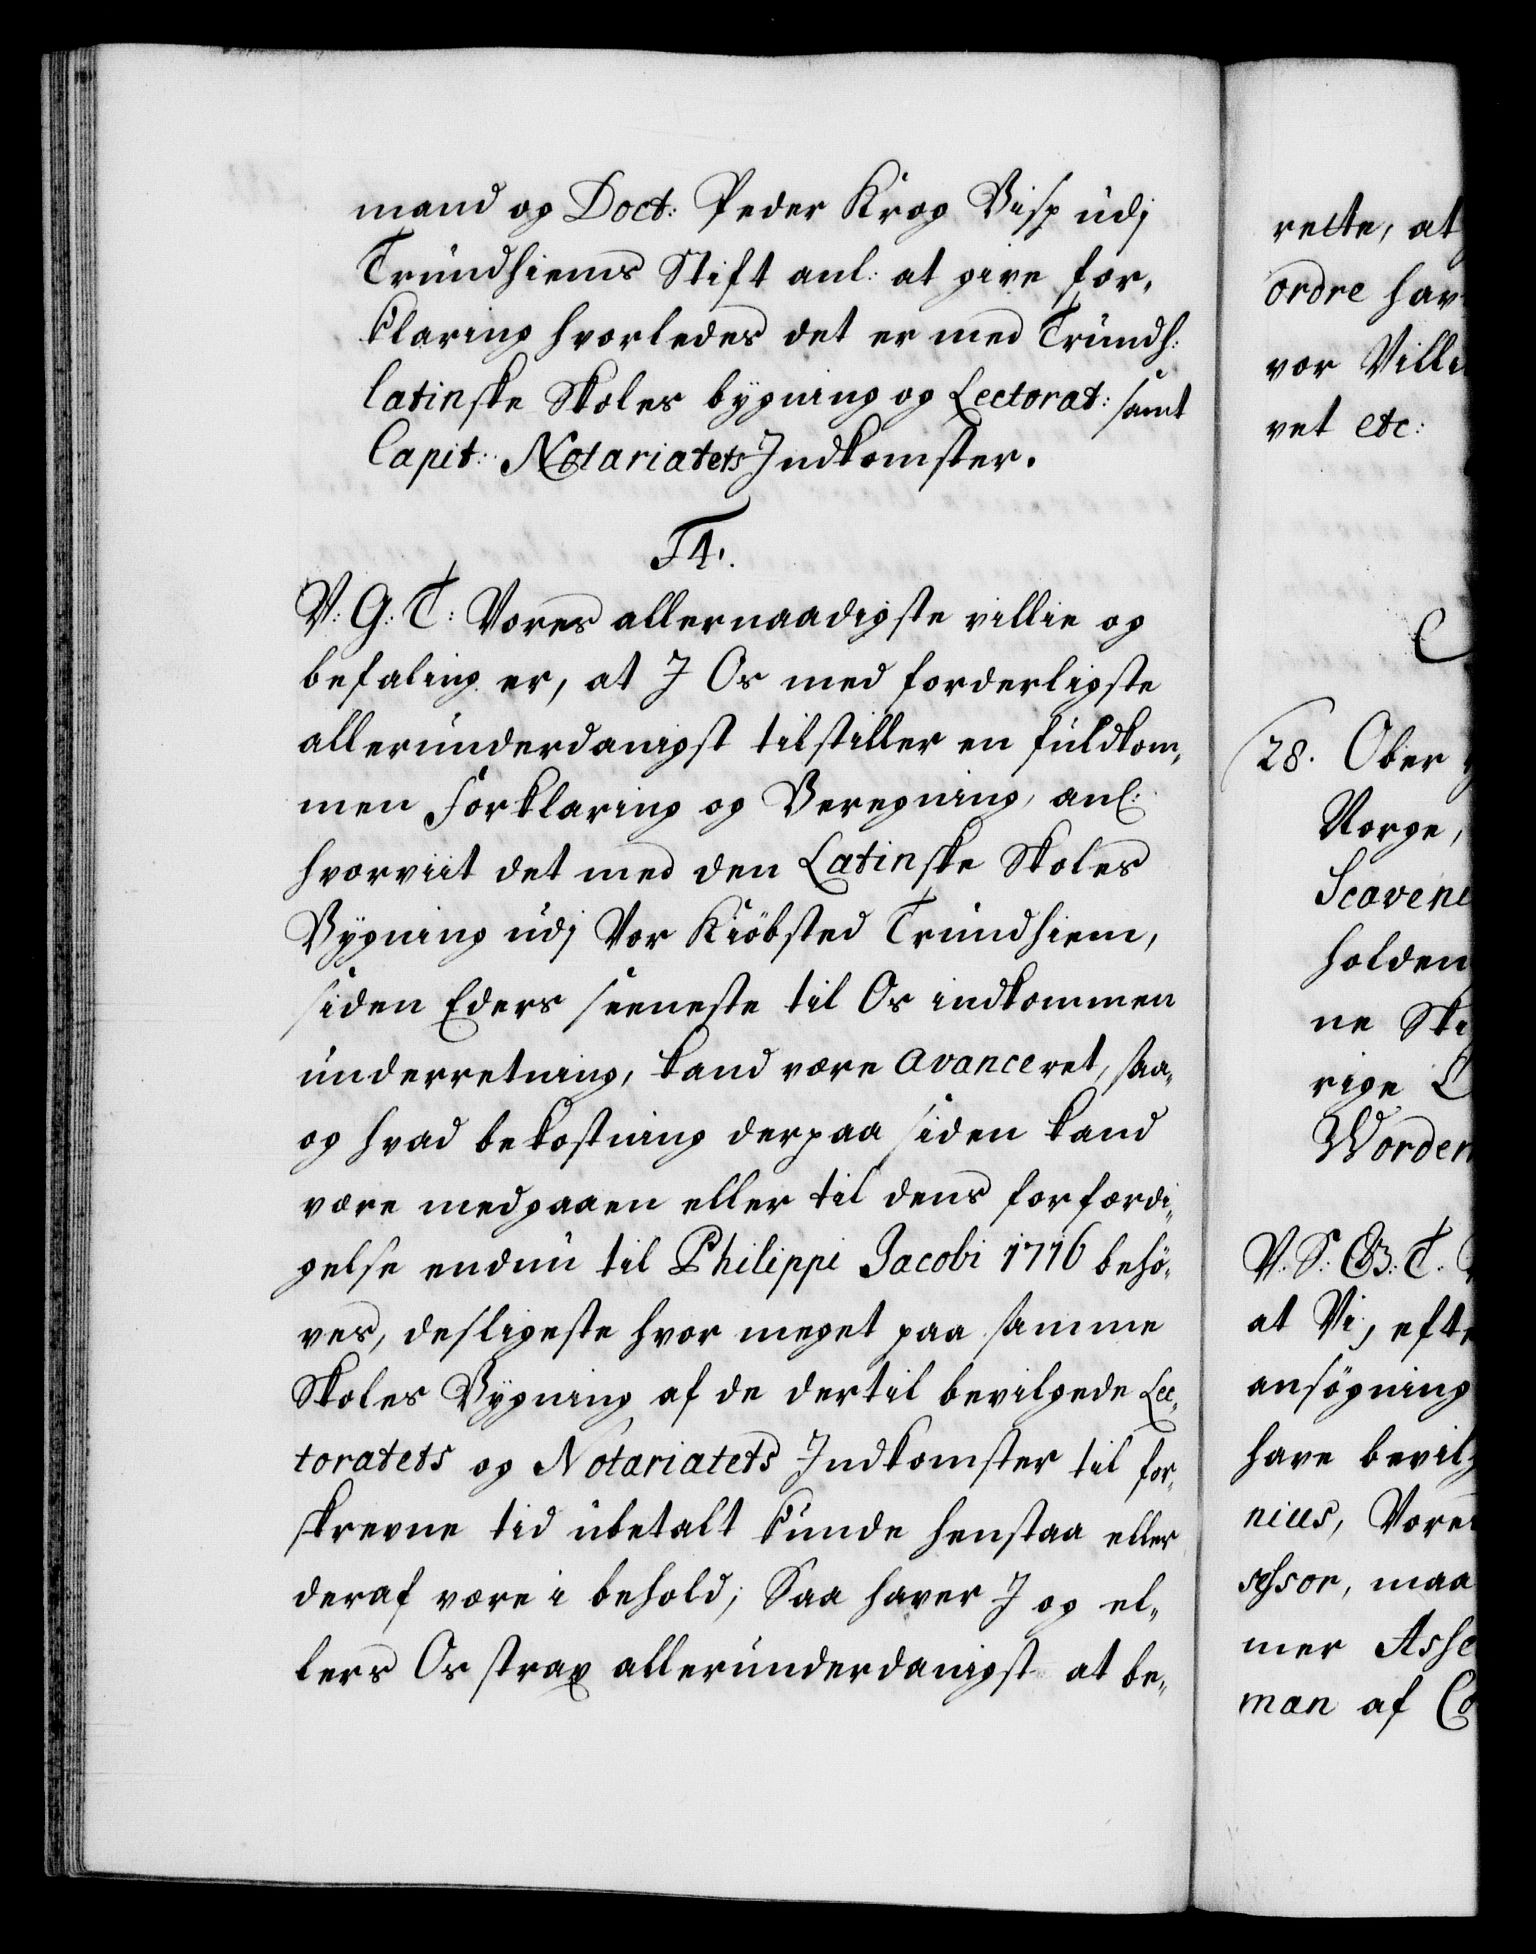 mand og Doct: Peder Krog Bisp udj
Trundhiems Stift anl: at give for„
klaring hvorledes det er med Trundh:
latinske Skoles bygning og Lectorat: samt
Capit: Notariatets Indkomster.
F4.
V: G: T: Vores allernaadigste villie og
befaling er, at I Os med forderligste
allerunderdanigst tilstiller en fuldkom„
men Forklaring og Beregning, anl:
hvorviit det med den Latinske Skoles
Bygning udj Vor Kiöbsted Trundhiem,
siden Eders seeneste til Os indkommen
underretning, kand være avanceret, saa„
og hvad bekostning derpaa siden kand
være medgaaen eller til dens forfærdi„
gelse endnu til Philippi Jacobi 1716 behö„
ves, desligeste hvor meget paa samme
Skoles Bygning af de dertil bevilgede Lec„
toratets og Notariatets Indkomster til for„
skrevne tid ubetalt kunde henstaa eller
deraf være i behold; Saa haver I og el„
lers Os strax allerunderdanigst at be„
rette, at
ordre hav
vor Villi
vet etc:
C
28. Ober
Norge,
Scaveni
holden
ne Sk
rige
Worden
V: S: G: T.
at Vi, efte
ansögning
have bevilg
nius, Vores
sessor, maa
mer Asse
man af Co